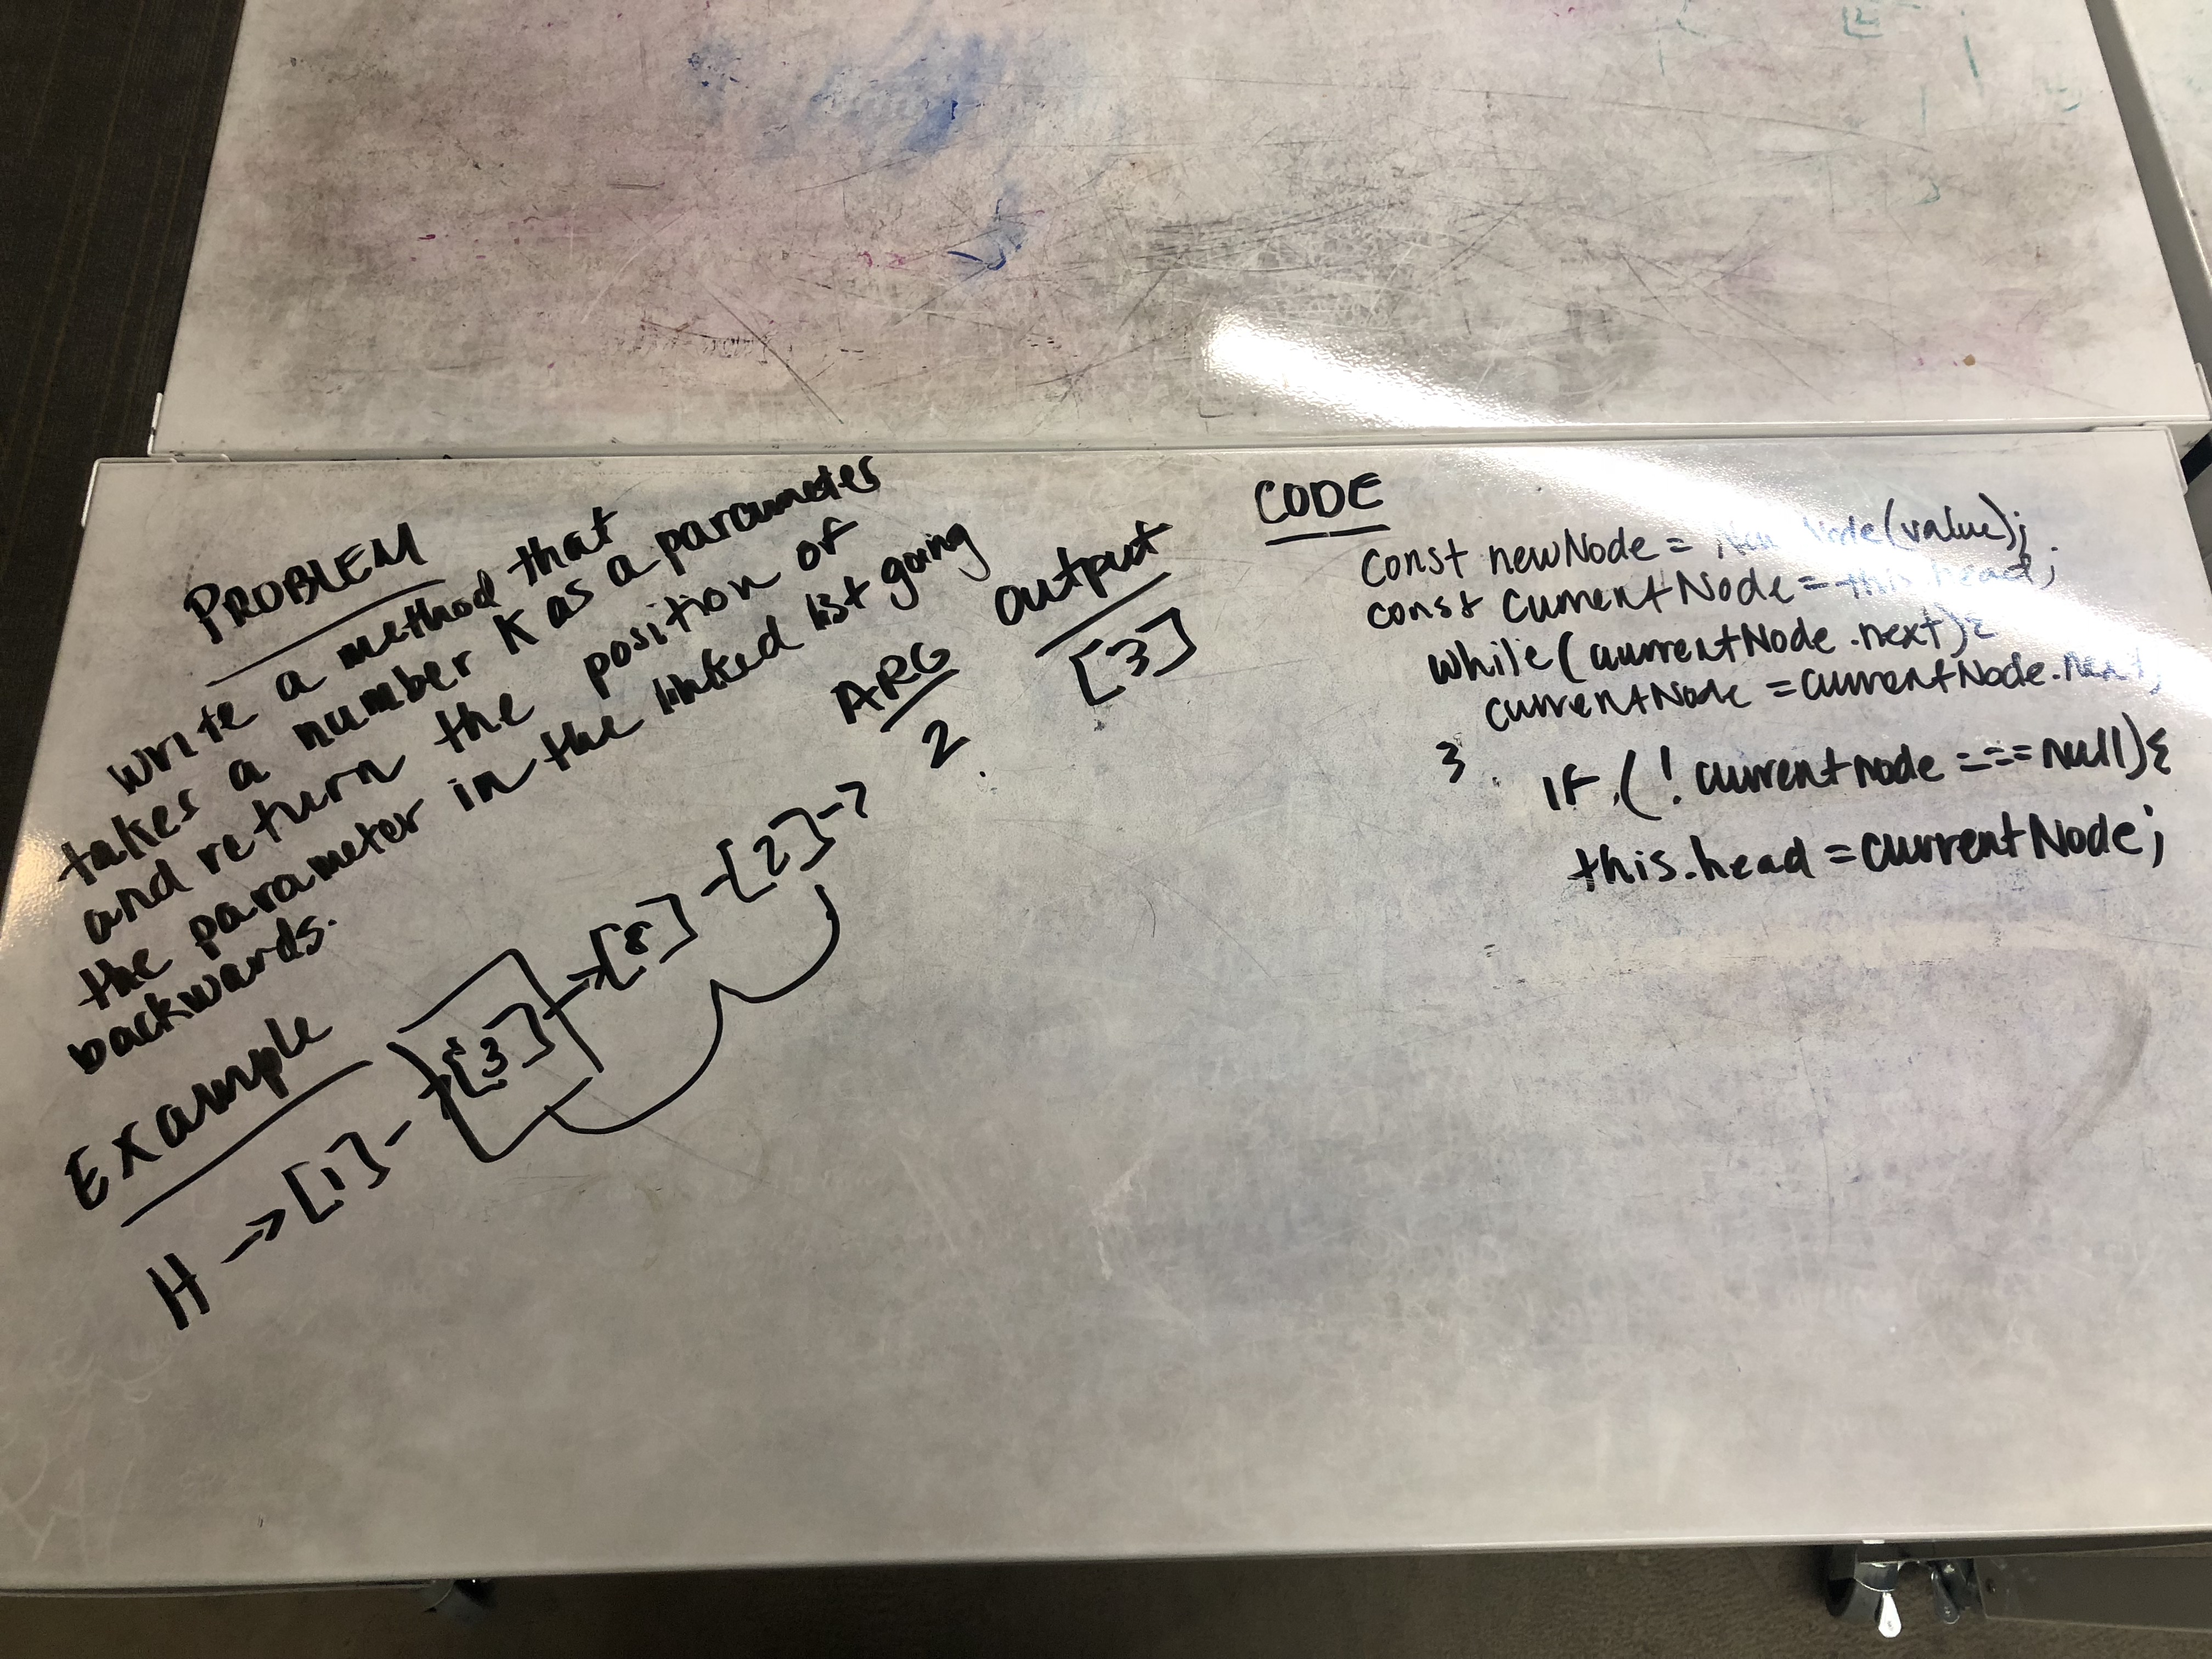 PROBLEM
Write a method that
takes a number K as a parameter
and return the position of
the parameter in the linked list going
backwards.
Example
H → [1] - [3] → [8] - [2] -
ARG
2
output
[3]
CODE
const newNode = new Node(value);
const currentNode = this.head;
while (currentNode.next) {
currentNode = currentNode.next;
}
if (! currentnode === null) {
this.head = currentNode;